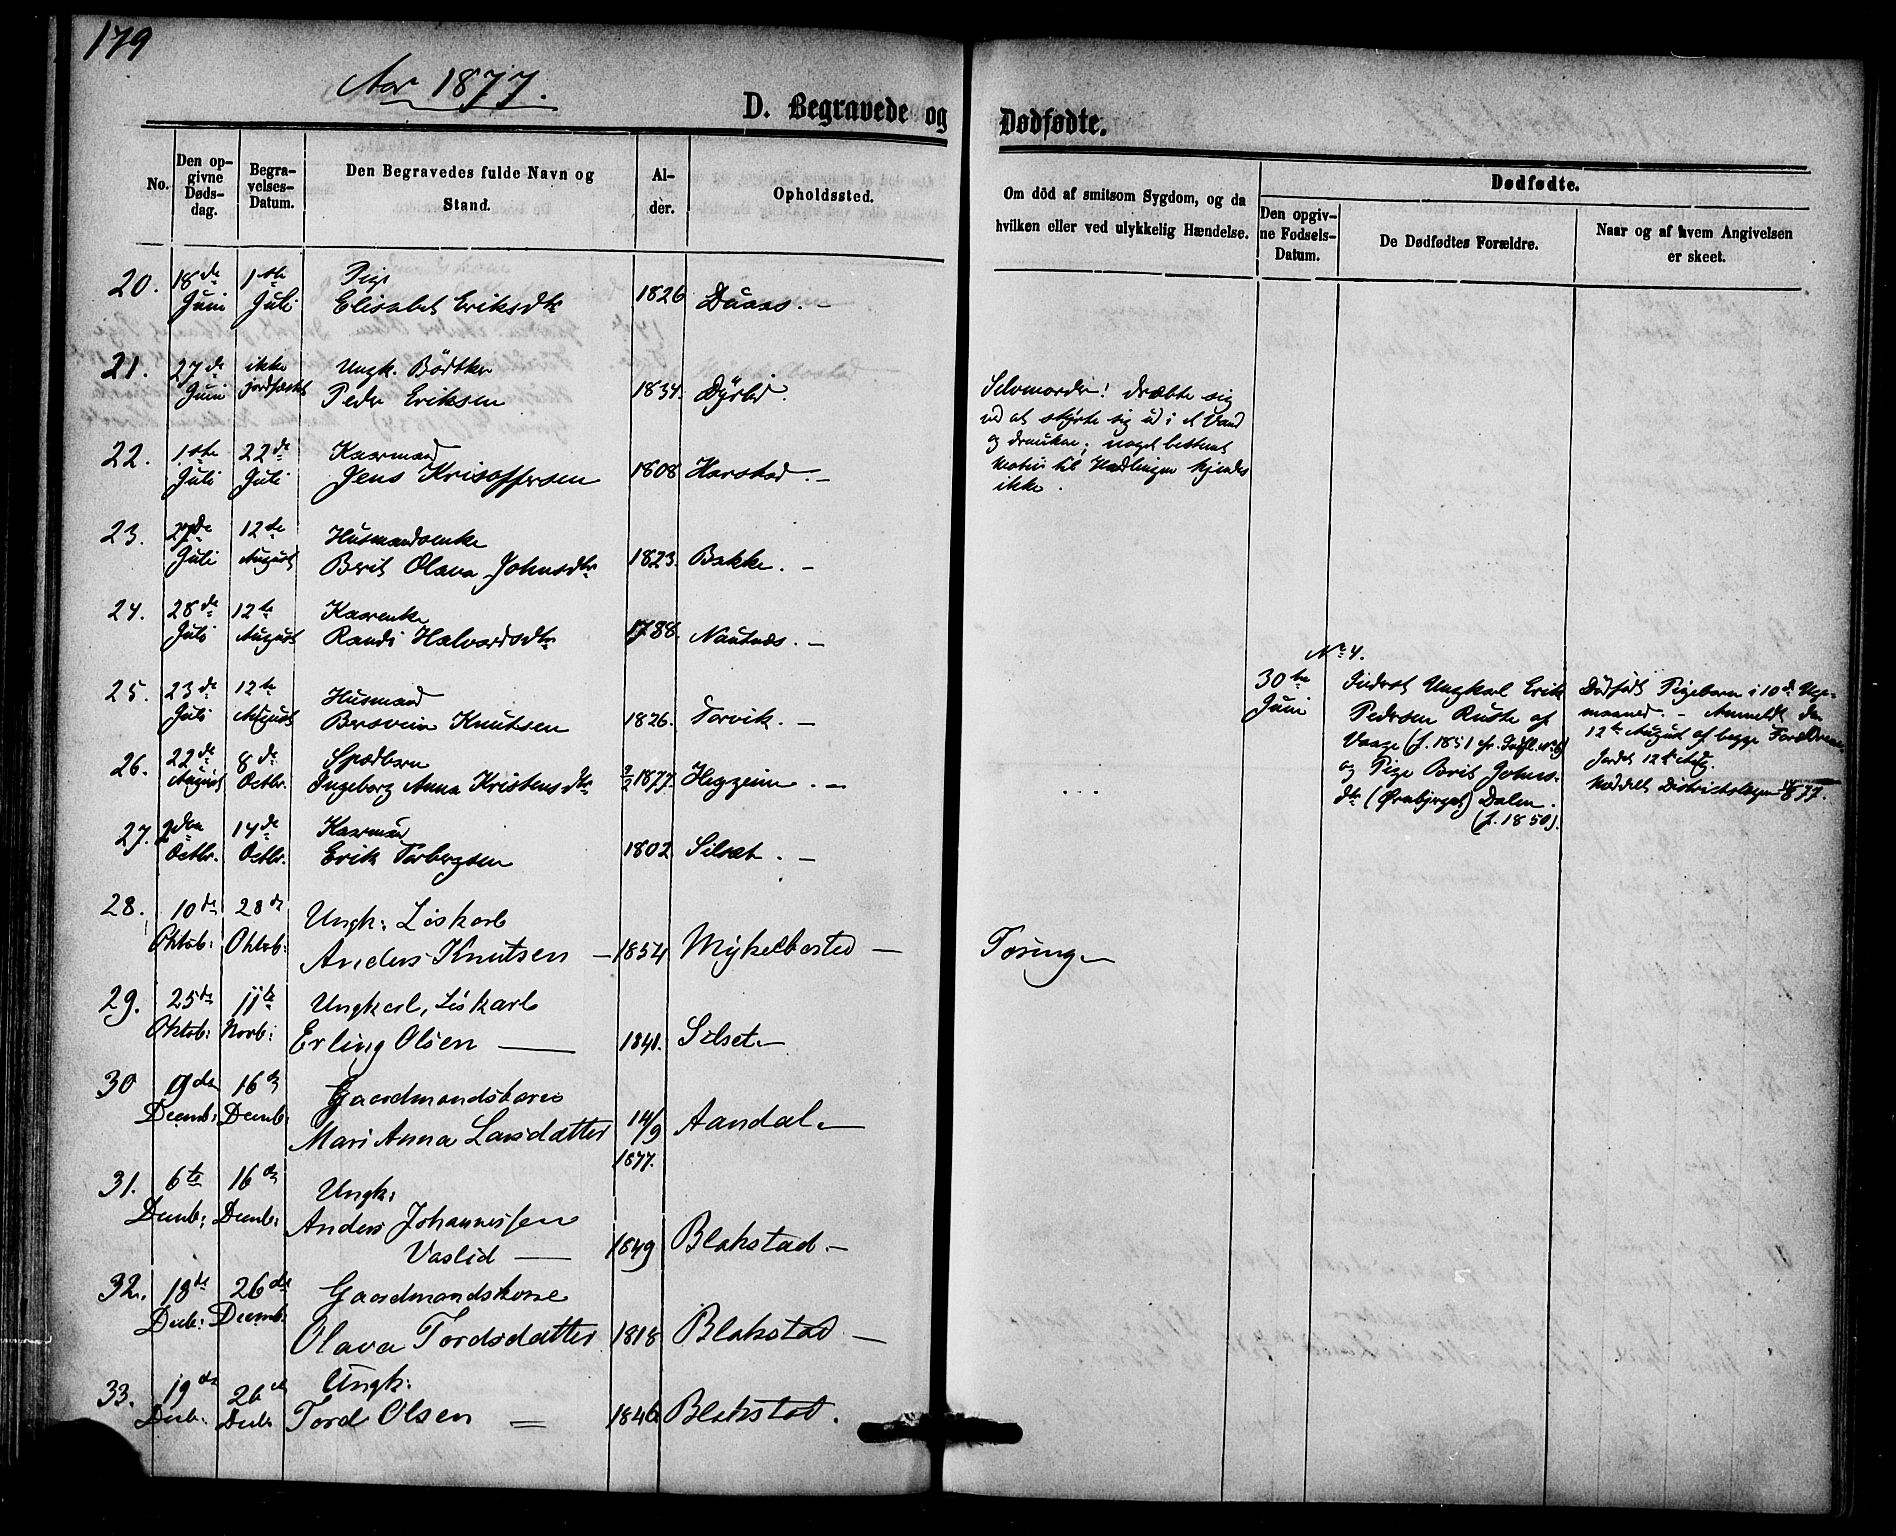 179
Aar 1877.
D. Begravede og Dødfødte.
No.
Den opgivne Dødsdag.
Begravelses-Datum.
Den Begravedes fulde Navn og Stand.
Alder.
Opholdssted.
Om död af smitsom Sygdom, og da hvilken eller ved ulykkelig Hændelse.
Dødfødte.
Den opgivne Fødsels-Datum.
De Dødfødtes Forældre.
Naar og af hvem Angivelsen er skeet.
20. 18de Juni 1ste Juli Pige
Elisabet Eriksdtr 1826 Duaas. –
21. 27de Juni ikke jordfæstet Ungk. Bödtker
Peder Eriksen 1834. Dyrlid.
Selvmorder! dræbte sig
ved at styrte sig ud i et Vand
og drukne; noget bestemt
Motiv til Handlingen kjendes
ikke.
22. 1ste Juli 22de Juli Kaarmand
Jens Kristoffersen 1808 Harstad. –
23. 27de Juli 12te August Husmandsenke
Berit Olava Johnsdtr 1823. Bakke. –
24. 28de Juli 12te August Kaarenke
Randi Halvardsdtr 1788. Nautnes. –
25. 23de Juli 12te August Husmand
Bersvein Knutsen 1826. Torvik. –
No 4.
30te Juni
Inderst Ungkarl Erik
Pedersen Ruste af
Vaage (f. 1851
og Pige Brit Johns-
dtr (Ørnbjerget) Dalen.
(f. 1850).
Dødfødt Pigebarn i 10de
maaned. – Anmeldt den
12te August af begge Forældrene
Jordet 12te Aug.
Meddelt Districtslægen 1877.
26. 22de August 8de Octbr. Spædbarn
Ingeborg Anna Kristensdtr 2/2 1877. Heggeim. –
27. 2den Octbr. 14de Octbr. Kaarmand
Erik Torbergsen 1802 Silset. –
28. 10de Oktob: 28de Oktob: Ungk: Löskarl
Anders Knutsen – 1854 Myklebostad –
Tæring –
29. 25de Oktob: 11te Novb: Ungkarl, Löskarl
Erling Olsen — 1841. Silset –
30 9de Decemb: 16de Decemb: Gaardmandsbarn
Mari Anna Larsdatter 14/9 1877. Aandal –
31. 6te Decemb: 16de Decemb: Ungk:
Anders Johannessen
Vaslid — 1849 Blakstad –
32. 18de Decb: 26de Decemb: Gaardmandskone
Olava Tordsdatter 1818 Blakstad –
33. 19de Decb. 26de Decb Ungk:
Tord Olsen = 1846 Blakstad.